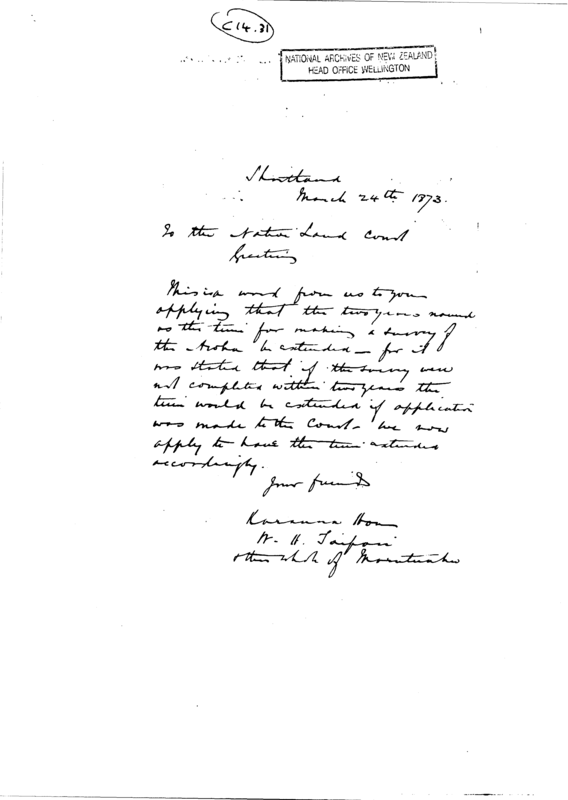 C14.31
NATIONAL ARCHIVES OF NEW ZEALAND
HEAD OFFICE WELLINGTON
Shortland
March 24th 1873.
To the Native Land Court
Greeting
This is a word from us to you
applying that the two years named
as the time for making a survey of
the Aroha be extended – for it
was stated that if the survey were
not completed within two years the
time would be extended if application
was made to the Court – we now
apply to have the time extended
accordingly.
Your friends
Karauna Hou
W. H. Taipari
the whole of